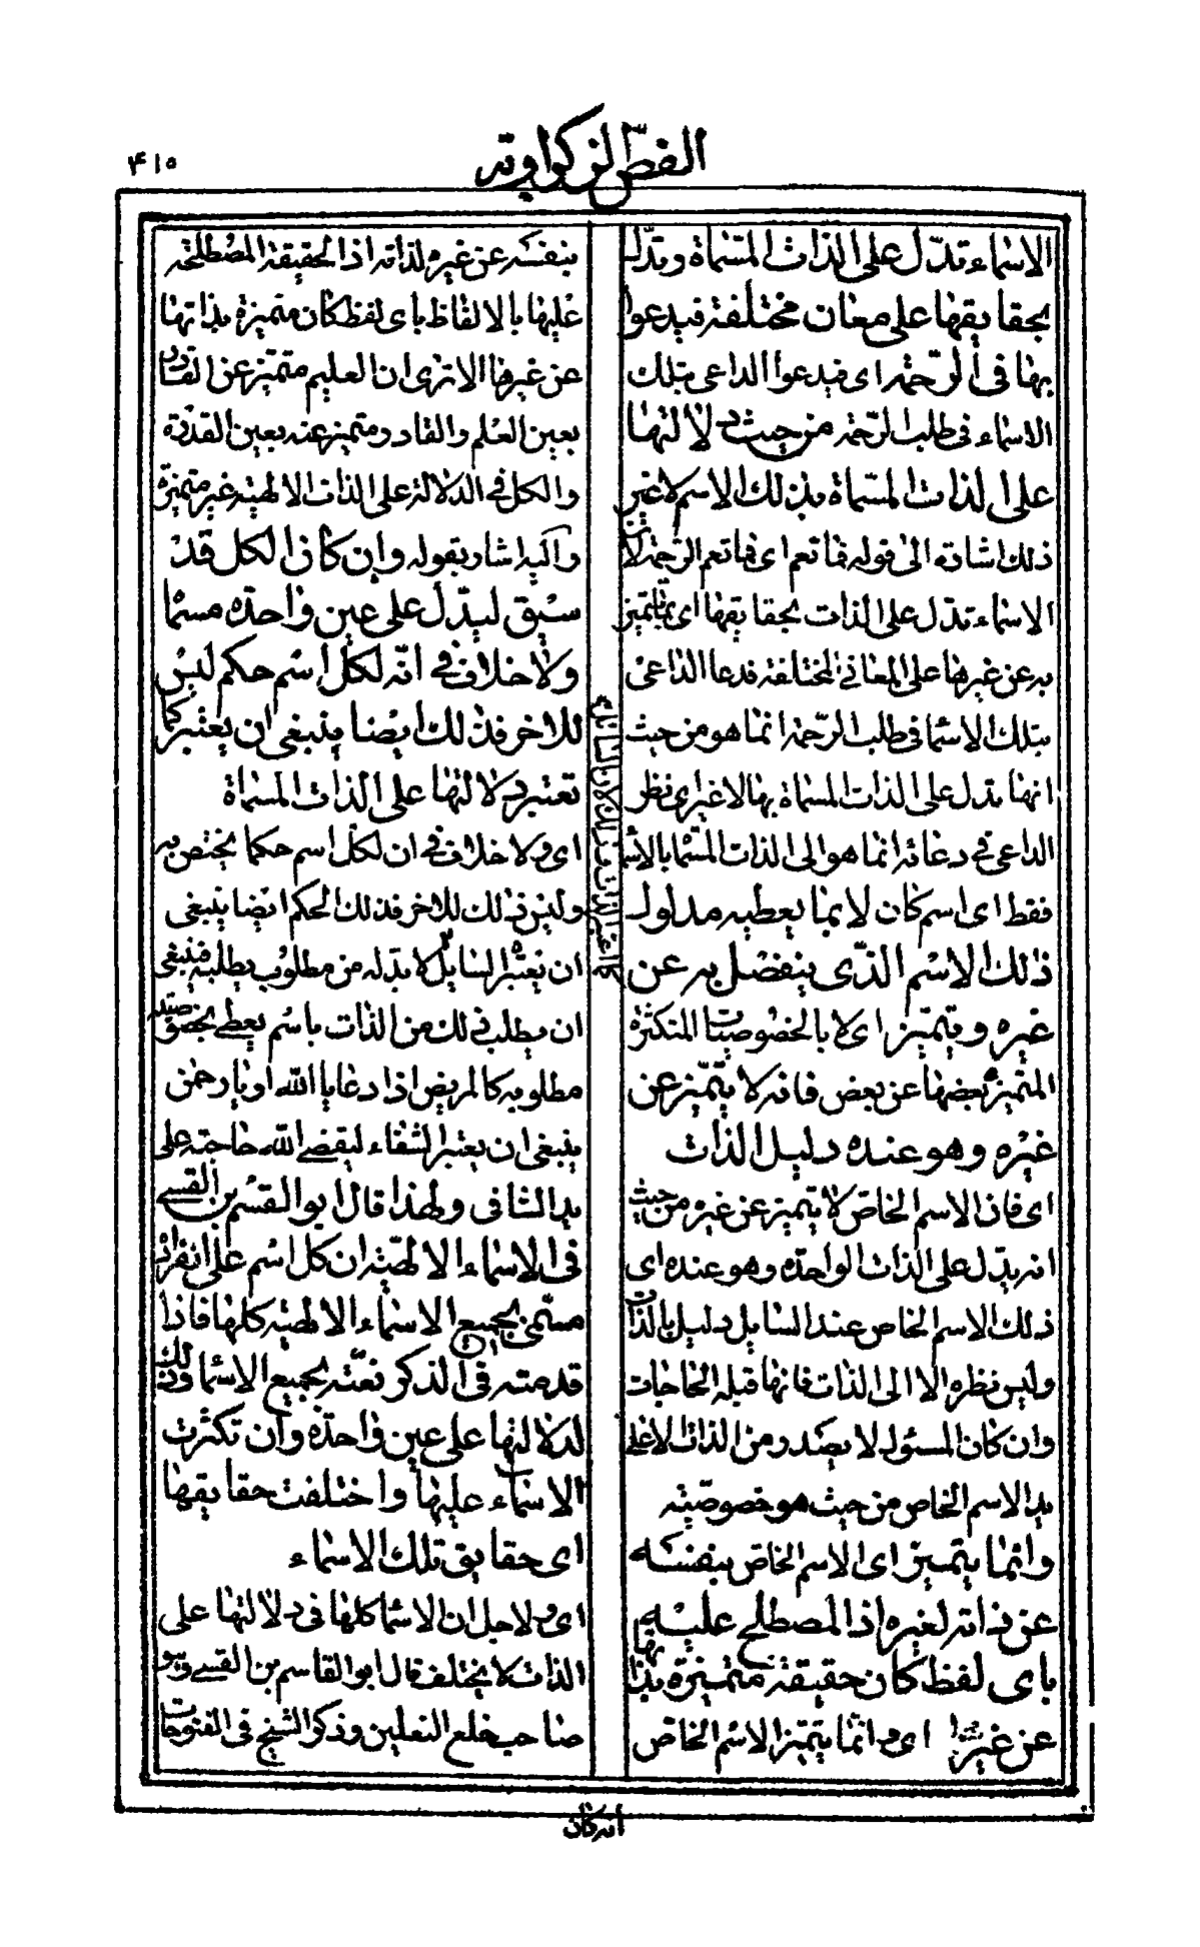 الفصّ الزكراويّه
٤١٥
الاسماء تدلّ على الذات المسماة وتدلّ
بحقايقها على معان مختلفة فيدعوا
بها فى الرّحمة اى فيدعوا الداعى بتلك
الاسماء فى طلب الرّحمة من حيث دلالتها
على الذات المسمّاة بذلك الاسم لا غير
ذلك اشارة الى قوله فما تعم اى فما تعم الرّحمة لان
الاسماء تدل على الذات بحقايقها اى بما يتميز
به عن غيرها على المعانى المختلفة فدعا الداعى
بتلك الاسما فى طلب الرّحمة انما هو من حيث
انها تدل على الذات المسماة بها لا غير اى نظر
الداعى فى دعائه انما هو الى الذات المسمّا بالأسما
فقط اى اسم كان لا بما يعطيه مدلول
ذلك الاسم الذى ينفصل به عن
غيره ويتميّز اى لا بالخصوصيات المتكثرة
المتميزة بعضها عن بعض فانه لا يتميّز عن
غيره وهو عنده دليل الذات
اى فان الاسم الخاص لا يتميز عن غيره من حيث
انه يدل على الذات الواحدة وهو عنده اى
ذلك الاسم الخاص عند السايل دليل بالذات
وليس نظره الا الى الذات فانها قبلة الحاجات
وان كان المسئول لا يصدر من الذات الا على
يد الاسم الخاص من حيث هو خصوصيّته
وانما يتميّز اى الاسم الخاص بنفسه
عن ذاته لغيره اذ المصطلح عليه
باى لفظ كان حقيقة متميزة بذاتها
عن غيرها اى وانما يتميّز الاسم الخاص
بنفسه عن غيره لذاته اذ الحقيقة المصطلحة
عليها بالالفاظ باى لفظ كان متميزة بذاتها
عن غيرها الا ترى ان العليم متميّز عن القادر
بعين العلم والقادر متميز عنه بعين القدرة
والكل فى الدلالة على الذات الالهية غير متميزة
واليه اشار بقوله وان كان الكل قد
سيق ليدل على عين واحدة مسما
ولا خلاف فى انّه لكل اسم حكم ليس
للاخر فذلك ايضا ينبغى ان يعتبر كما
تعتبر دلالتها على الذات المسماة
اى ولا خلاف فى ان لكل اسم حكما يختص به
وليس ذلك للاخر فذلك الحكم ايضا ينبغى
ان يعتبر السايل لا بدله من مطلوب يطلبه فينبغى
ان يطلب ذلك من الذات باسم يعطى بخصوصيته
مطلوبه كالمريض اذا دعا يا الله او يا رحمن
ينبغى ان يعتبر الشفاء ليقضى الله حاجته على
يد الشافى ولهذا قال ابو القسم بن القسى
فى الاسماء الالهيّة ان كل اسم على انفراده
مسمّى بجميع الاسماء الالهية كلها فاذا
قدمته فى الذكر نعتّه بجميع الاسما وذلك
لدلالتها على عين واحدة وان تكثرت
الاسماء عليها واختلفت حقايقها
اى حقايق تلك الاسماء
اى ولاجل ان الاسما كلها فى دلالتها على
الذات لا يختلف قال ابو القاسم بن القسى وهو
صاحب خلع النعلين وذكر الشيخ فى الفتوحات
انه كان